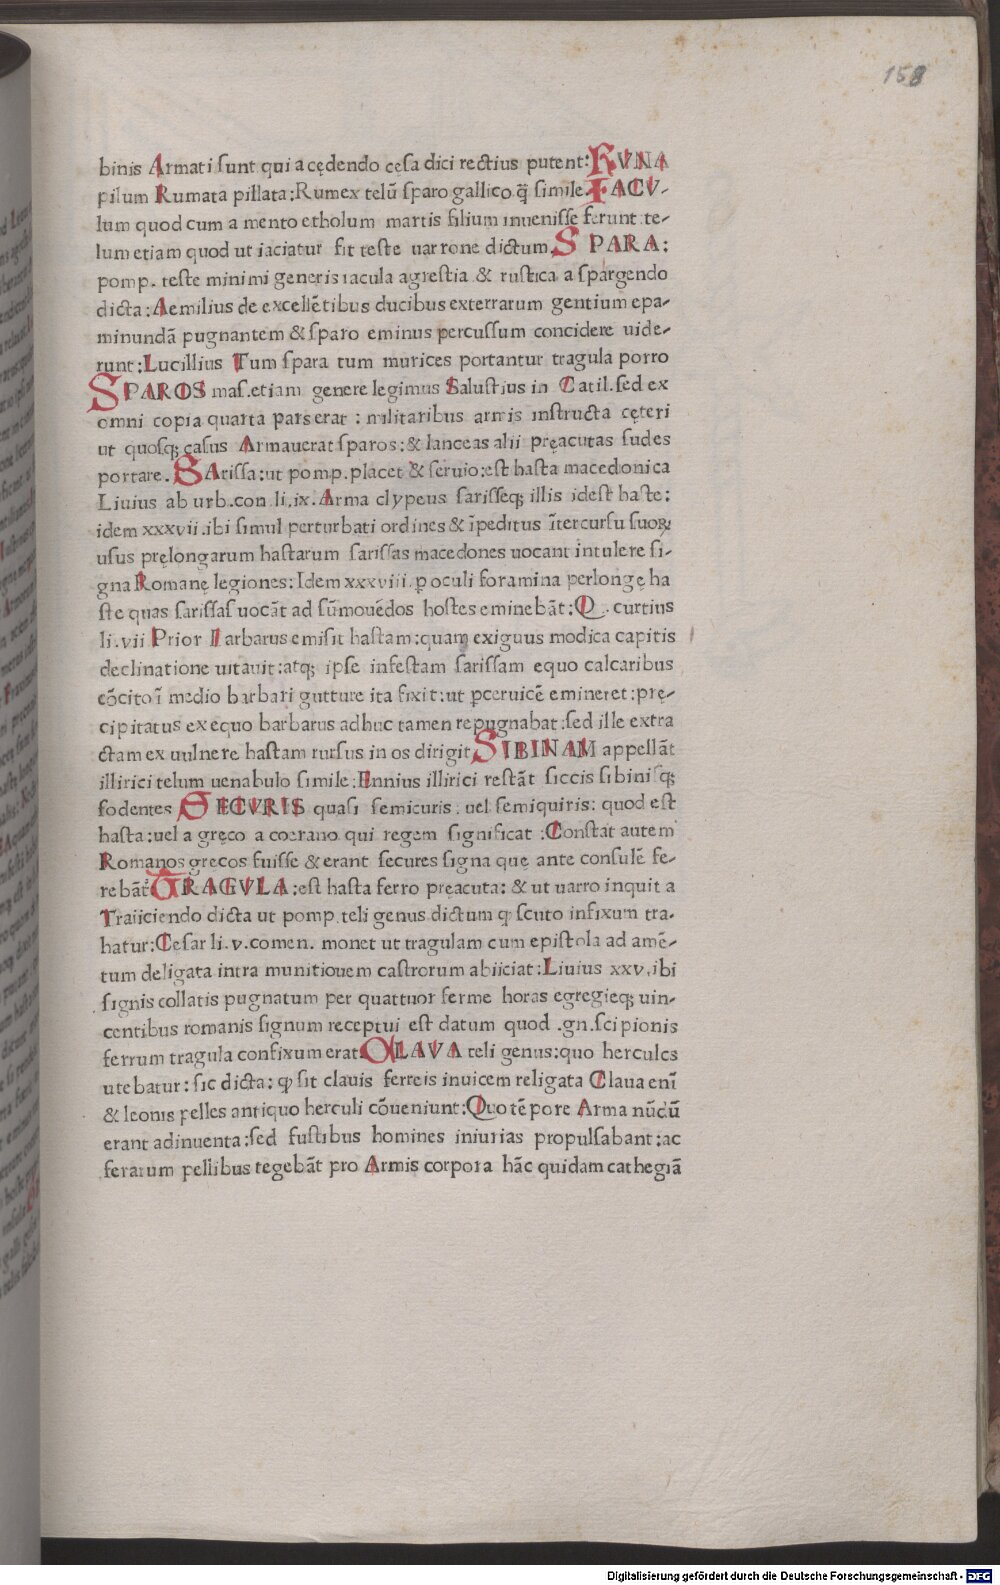 158
binis Armati sunt qui a cędendo cęsa dici rectius putent: RVNA
pilum Rumata pillata: Rumex telū sparo gallico q̄ simile IACV-
lum quod cum a mento etholum martis filium inuenisse ferunt te-
lum etiam quod ut iaciatur fit teste uarrone dictum SPARA:
pomp. teste minimi generis iacula agrestia & rustica a spargendo
dicta: Aemilius de excellētibus ducibus exterrarum gentium epa-
minundā pugnantem & sparo eminus percussum concidere uide-
runt: Lucillius Tum spara tum murices portantur tragula porro
SPAROS mas. etiam genere legimus Salustius in Catil. sed ex
omni copia quarta pars erat: militaribus armis instructa cęteri
ut quosq; casus Armauerat sparos: & lanceas alii pręacutas sudes
portare. SArissa: ut pomp. placet & seruio: est hasta macedonica
Liuius ab urb. con li. ix. Arma clypeus sarisseq; illis idest haste:
idem xxxvii. ibi simul perturbati ordines & īpeditus ītercursu suoꝝ
usus pręlongarum hastarum sarissas macedones uocant intulere si-
gna Romanę legiones: Idem xxxviii. ꝑ oculi foramina perlongę ha
ste quas sarissas uocāt ad sūmouēdos hostes eminebāt: Q. curtius
li. vii Prior Barbarus emisit hastam: quam exiguus modica capitis
declinatione uitauit: atq; ipse infestam sarissam equo calcaribus
cōcito ī medio barbari gutture ita fixit: ut ꝑceruicē emineret: prę-
cipitatus ex equo barbarus adhuc tamen repugnabat: sed ille extra
ctam ex uulnere hastam rursus in os dirigit SIBINAM appellāt
illirici telum uenabulo simile: Ennius illirici restāt siccis sibinisq;
fodentes SECVRIS quasi semicuris. uel semiquiris: quod est
hasta: uel a gręco a coerano qui regem significat: Constat autem
Romanos gręcos fuisse & erant secures signa quę ante consulē fe-
rebāt TRAGVLA: est hasta ferro pręacuta: & ut uarro inquit a
Traiiciendo dicta ut pomp. teli genus dictum ꝙ scuto infixum tra-
hatur: Cesar li. v. comen. monet ut tragulam cum epistola ad amē-
tum deligata intra munitiouem castrorum abiiciat: Liuius xxv. ibi
signis collatis pugnatum per quattuor ferme horas egregieq; uin-
centibus romanis signum receptui est datum quod .gn. scipionis
ferrum tragula confixum erat: CLAVA teli genus: quo hercules
utebatur: sic dicta: ꝙ sit clauis ferreis inuicem religata Claua enī
& leonis pelles antiquo herculi cōueniunt: Quo tēpore Arma nūdū
erant adinuenta: sed fustibus homines iniurias propulsabant: ac
ferarum pellibus tegebāt pro Armis corpora hāc quidam cathegiā
Digitalisierung gefördert durch die Deutsche Forschungsgemeinschaft - DFG